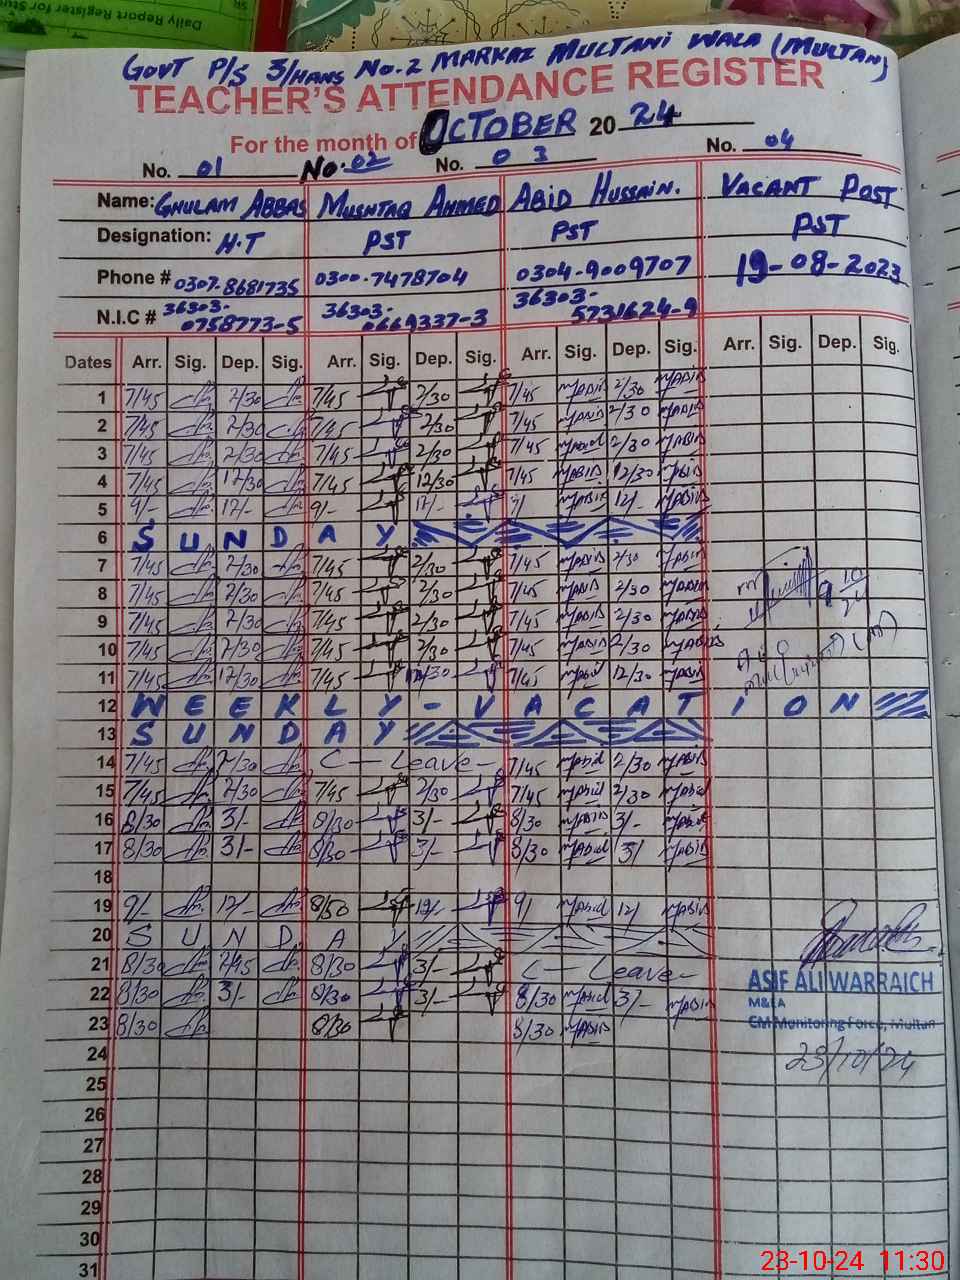 Daily Report Register for Stu
GOVT P/S 3/HANS No.2 MARKAZ MULTANI WALA (MULTAN)
TEACHER'S ATTENDANCE REGISTER
For the month of OCTOBER 2024
No. 01 No. 02 No. 03 No. 04
Name: GHULAM ABBAS MUSHTAQ AHMED ABID HUSSAIN. VACANT POST
Designation: H.T PST PST PST
Phone # 0307-8681735 0300-7478704 0304-9009707 19-08-2023
N.I.C # 36303-0758773-5 36303-0669337-3 36303-5731624-9
Dates Arr. Sig. Dep. Sig. Arr. Sig. Dep. Sig. Arr. Sig. Dep. Sig. Arr. Sig. Dep. Sig.
1 7/45 2/30 7/45 2/30 7/45 MABID 2/30 MABID
2 7/45 2/30 7/45 2/30 7/45 MABID 2/30 MABID
3 7/45 2/30 7/45 2/30 7/45 MABID 2/30 MABID
4 7/45 12/30 7/45 12/30 7/45 MABID 12/30 MABID
5 9/- 12/- 9/- 12/- 9/ MABID 12/- MABID
6 SUNDAY
7 7/45 2/30 7/45 2/30 7/45 MABID 2/30 MABID
8 7/45 2/30 7/45 2/30 7/45 MABID 2/30 MABID
9 7/45 2/30 7/45 2/30 7/45 MABID 2/30 MABID
10 7/45 2/30 7/45 2/30 7/45 MABID 2/30 MABID
11 7/45 12/30 7/45 12/30 7/45 MABID 12/30 MABID
12 WEEKLY - VACATION
13 SUNDAY
14 7/45 2/30 C - Leave - 7/45 MABID 2/30 MABID
15 7/45 2/30 7/45 2/30 7/45 MABID 2/30 MABID
16 8/30 3/- 8/30 3/- 8/30 MABID 3/- MABID
17 8/30 3/- 8/30 3/- 8/30 MABID 3/ MABID
18
19 9/- 12/- 8/50 12/- 9/ MABID 12/ MABID
20 SUNDAY
21 8/30 2/45 8/30 3/- C - Leave -
22 8/30 3/- 8/30 3/- 8/30 MABID 3/- MABID
23 8/30 8/30 8/30 MABID
ASIF ALI WARRAICH
M&EA
CM Monitoring Force, Multan
23/10/24
24
25
26
27
28
29
30
31
23-10-24 11:30